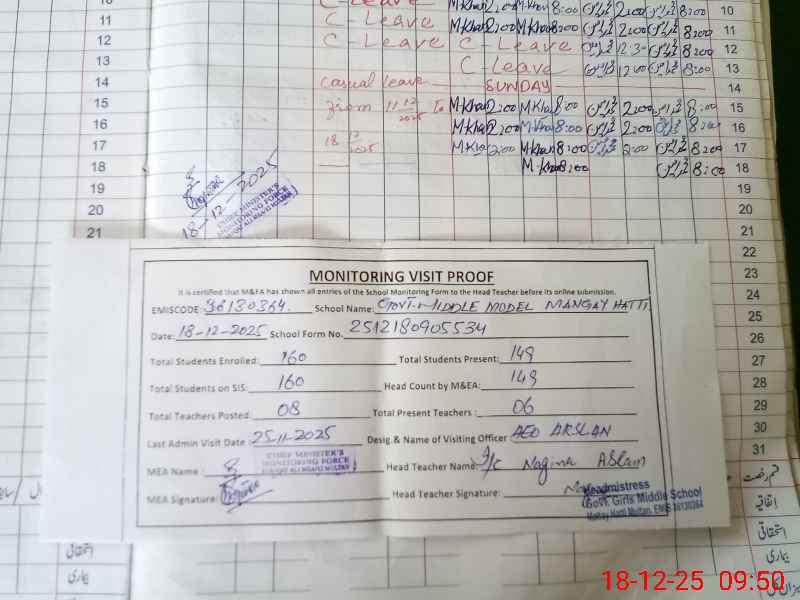 C-Leave 10
11 C-Leave M.Khan 2:00 M.Khan 8:00 2:00 8:00 11
12 C-Leave C-Leave 12:30 8:00 12
13 C-Leave 12:00 8:00 13
14 Casual leave SUNDAY 14
15 from 11 12 2025 To M.Khan 2:00 M.Khan 8:00 2:00 8:00 15
16 M.Khan 2:00 M.Khan 8:00 2:00 8:00 16
17 18 12 2025 M.Khan 2:00 M.Khan 8:00 2:00 8:00 17
18 M.Khan 8:00 8:00 18
19 19
20 20
21 21
18-12-2025
CHIEF MINISTER'S
MONITORING FORCE
22
23
24
25
26
27
28
29
30
31
MONITORING VISIT PROOF
It is certified that M&EA has shown all entries of the School Monitoring Form to the Head Teacher before its online submission.
EMISCODE: 36130364. School Name: GOVT. MIDDLE MODEL MANGAY HATTI
Date: 18-12-2025 School Form No. 2512180905534
Total Students Enrolled: 160 Total Students Present: 149
Total Students on SIS: 160 Head Count by M&EA: 149
Total Teachers Posted: 08 Total Present Teachers : 06
Last Admin Visit Date : 25-11-2025 Desig.& Name of Visiting Officer AEO ARSLAN
MEA Name CHIEF MINISTER'S MONITORING FORCE Head Teacher Name: I/C Nagina Aslam
MEA Signature Head Teacher Signature:
Headmistress
Govt. Girls Middle School
Mangay Hatti Multan, EMIS 36130364
قسم رخصت
اتفاقیہ
استحقاقی
بیماری
استحقاقی
بیماری
18-12-25 09:50